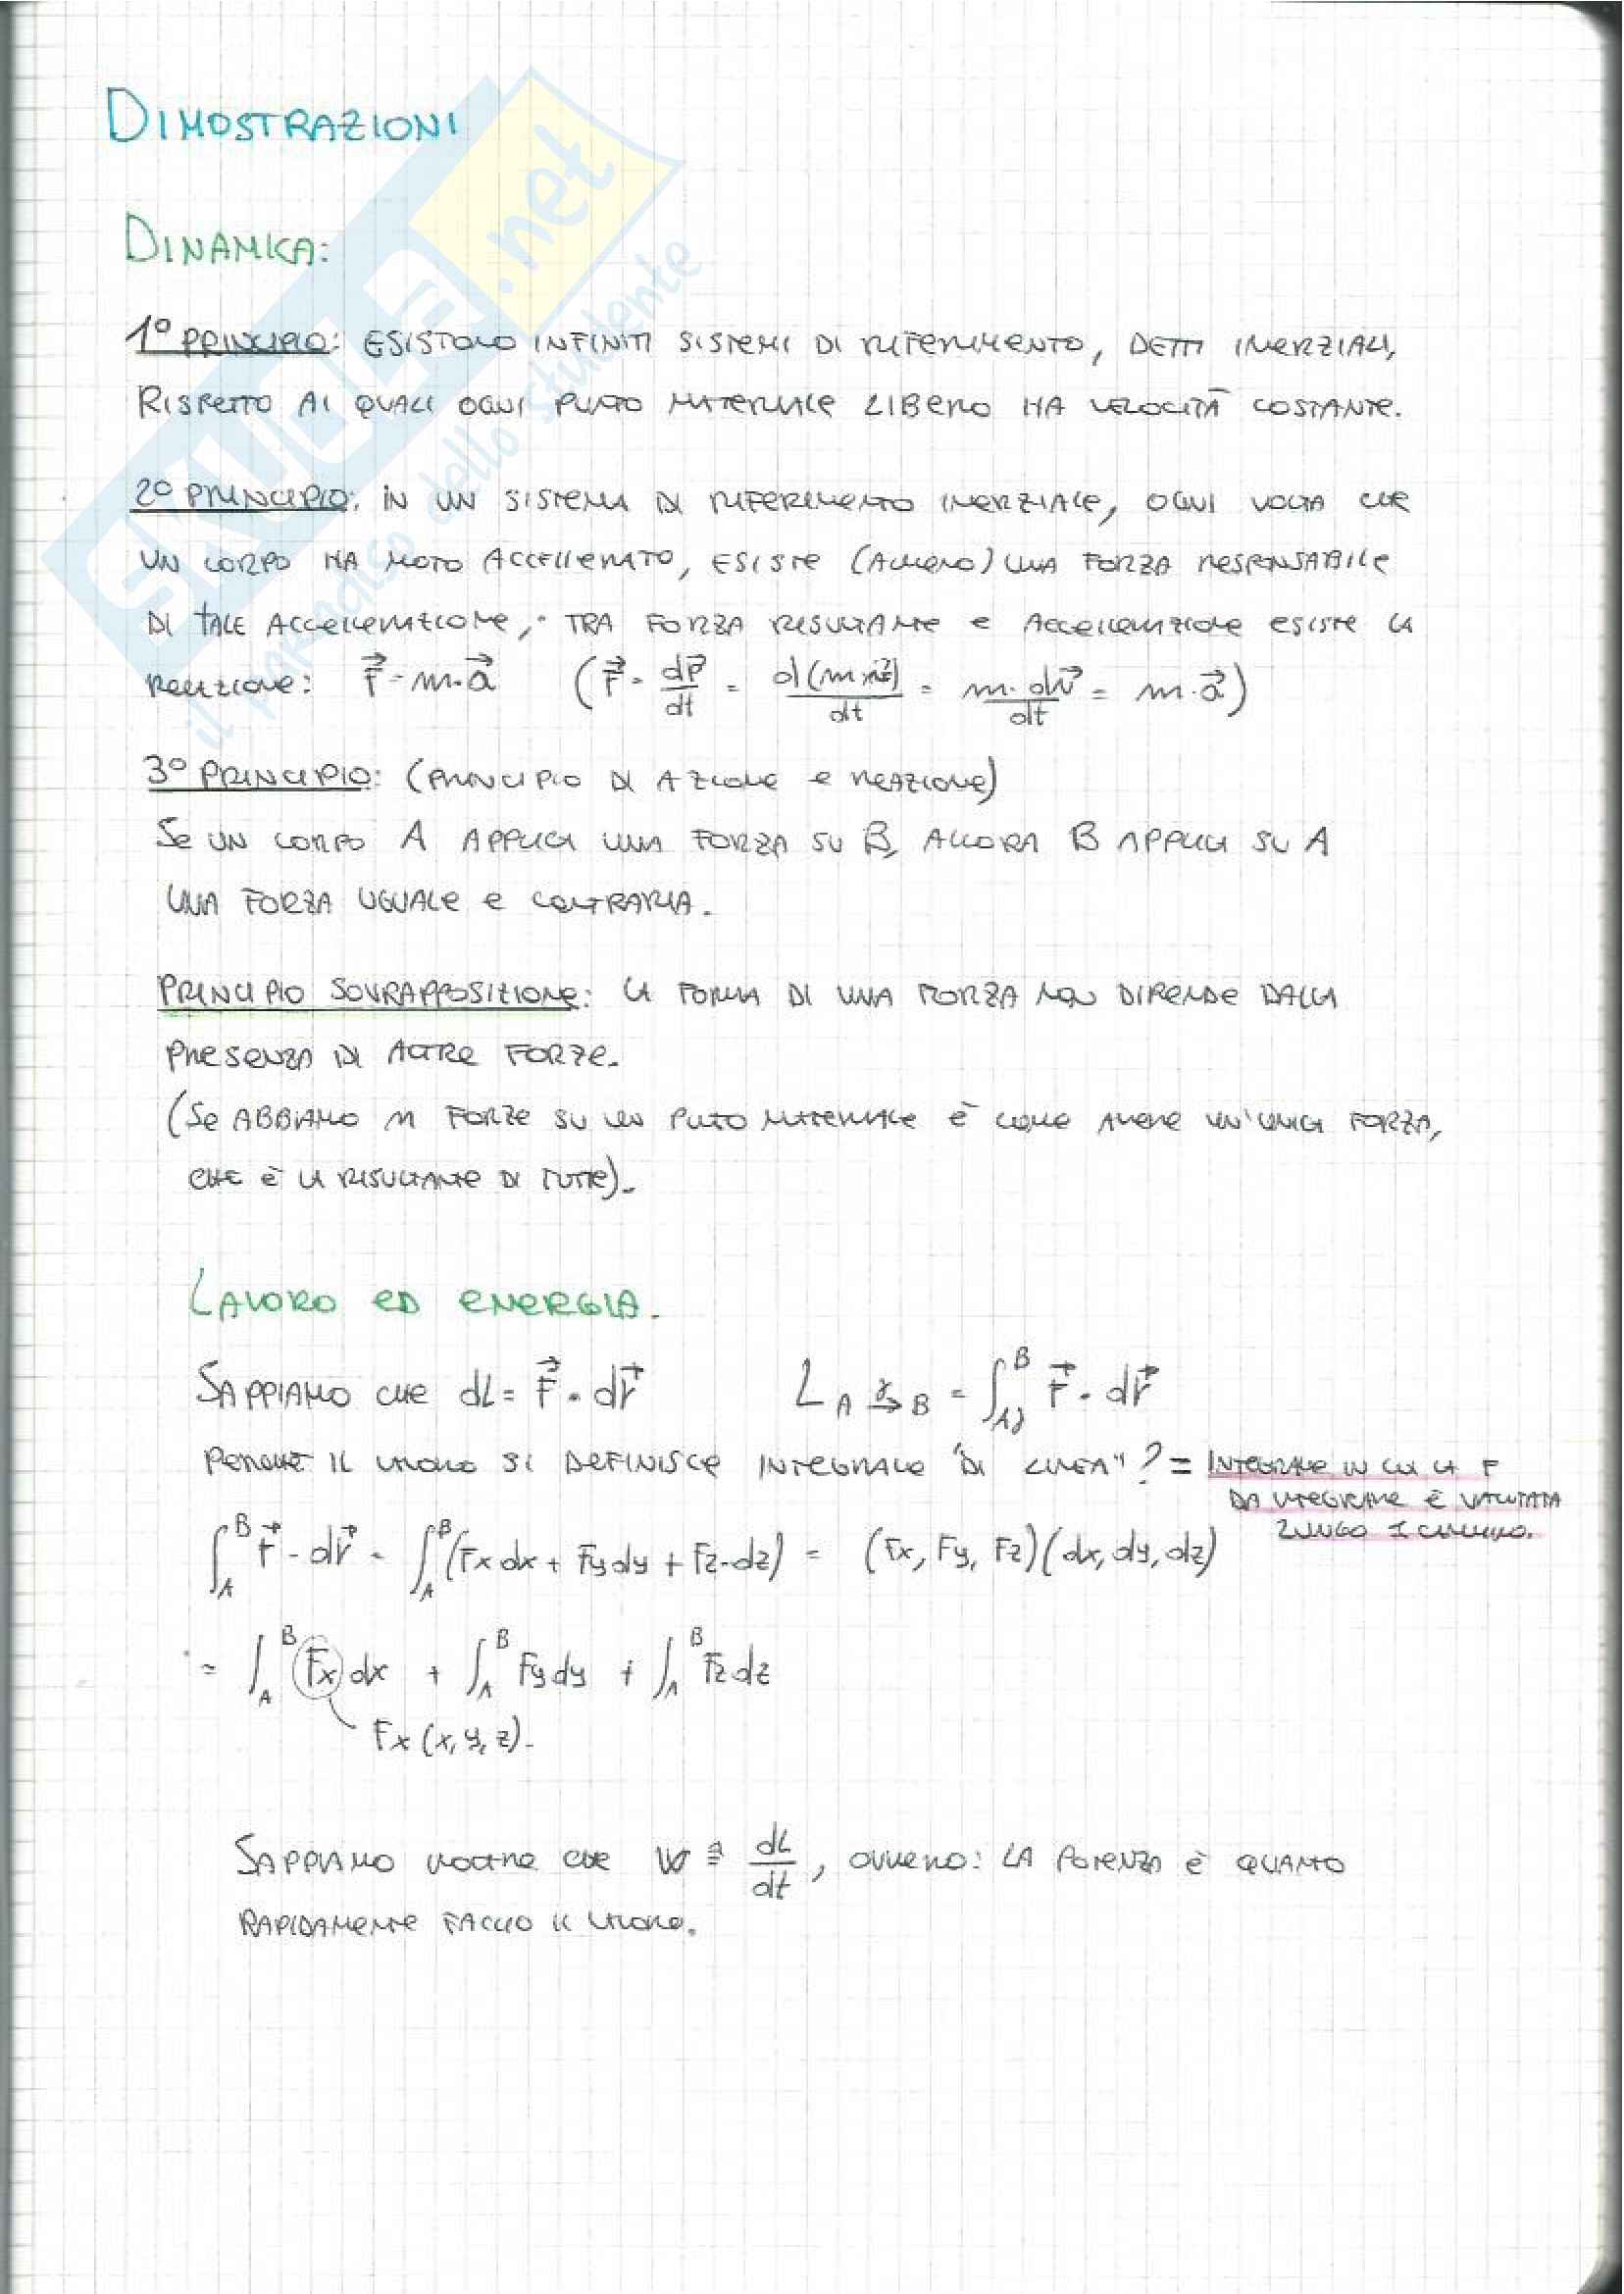 DIMOSTRAZIONI
DINAMICA:
1° PRINCIPIO: ESISTONO INFINITI SISTEMI DI RIFERIMENTO, DETTI INERZIALI,
RISPETTO AI QUALI OGNI PUNTO MATERIALE LIBERO HA VELOCITÀ COSTANTE.
2° PRINCIPIO: IN UN SISTEMA DI RIFERIMENTO INERZIALE, OGNI VOLTA CHE
UN CORPO HA MOTO ACCELLERATO, ESISTE (ALMENO) UNA FORZA RESPONSABILE
DI TALE ACCELLERAZIONE, TRA FORZA RISULTANTE E ACCELLERAZIONE ESISTE LA
RELAZIONE: F⃗ = m·a⃗ (F⃗ = dP⃗/dt = d(m·v⃗)/dt = m·dv⃗/dt = m·a⃗)
3° PRINCIPIO: (PRINCIPIO DI AZIONE E REAZIONE)
SE UN CORPO A APPLICA UNA FORZA SU B, ALLORA B APPLICA SU A
UNA FORZA UGUALE E CONTRARIA.
PRINCIPIO SOVRAPPOSIZIONE: LA FORMA DI UNA FORZA NON DIPENDE DALLA
PRESENZA DI ALTRE FORZE.
(SE ABBIAMO n FORZE SU UN PUNTO MATERIALE È COME AVERE UN'UNICA FORZA,
CHE È LA RISULTANTE DI TUTTE).
LAVORO ED ENERGIA.
SAPPIAMO CHE dL = F⃗ · dr⃗ L A γ→ B = ∫_{Aγ}^B F⃗ · dr⃗
PERCHÉ IL LAVORO SI DEFINISCE INTEGRALE "DI LINEA"? = INTEGRALE IN CUI LA F
DA INTEGRARE È VALUTATA
LUNGO 1 CAMMINO.
∫_A^B F⃗ · dr⃗ = ∫_A^B (Fx dx + Fy dy + Fz · dz) = (Fx, Fy, Fz)(dx, dy, dz)
= ∫_A^B Fx dx + ∫_A^B Fy dy + ∫_A^B Fz dz
Fx (x, y, z).
SAPPIAMO INOLTRE CHE W ≡ dL/dt, OVVERO: LA POTENZA È QUANTO
RAPIDAMENTE FACCIO IL LAVORO.
SKUOLA.net
il paradiso dello studente